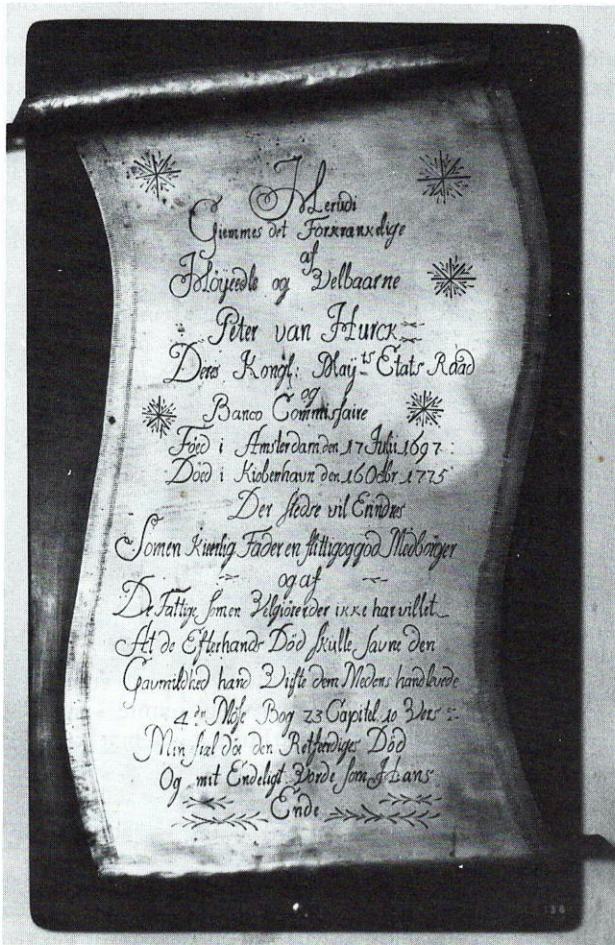 Herudi
Giemmes det Forkrænkelige
af
Høÿeedle og Velbaarne
Peter van Hurck
Deres Kongl: Maÿts Etats Raad
og
Banco Commisfaire
Föed i Amsterdam den 17 Julii 1697
Döed i Kiöbenhavn den 16 Odbr 1775
Der stedse vil Erindres
Som en Kierlig Fader en flittig og god Medborger
og af
De Fattige som en Velgiörer der ikke har villet
At de Efter hands Död skulle savne den
Gavmildhed hand Viste dem Medens hand levede
4de Mose Bog 23 Capitel 10 Vers
Min sial döe den Retfærdiges Död
Og mit Endeligt Vorde som Hans
Ende
138